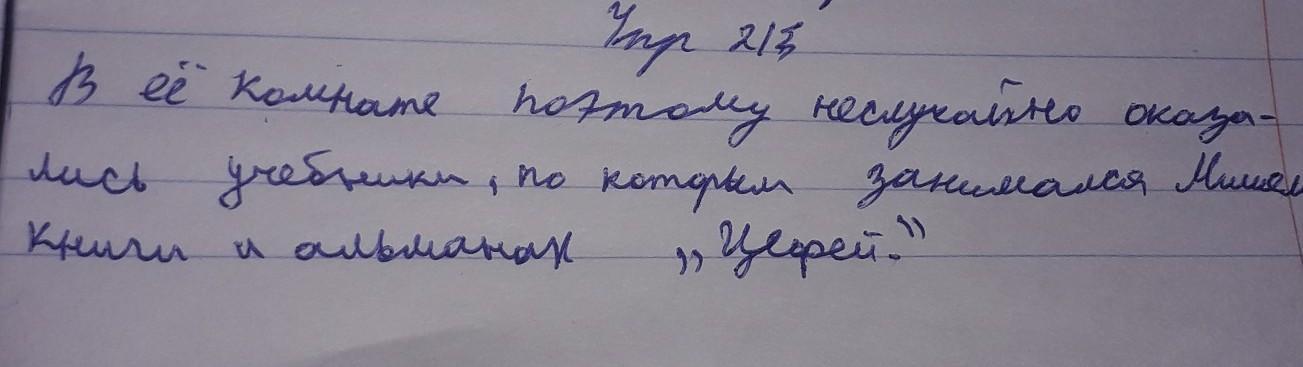 Упр 215
В её комнате поэтому неслучайно оказа-
лись учебники, по которым занимался Мишель
книги и альманах „Цефей."